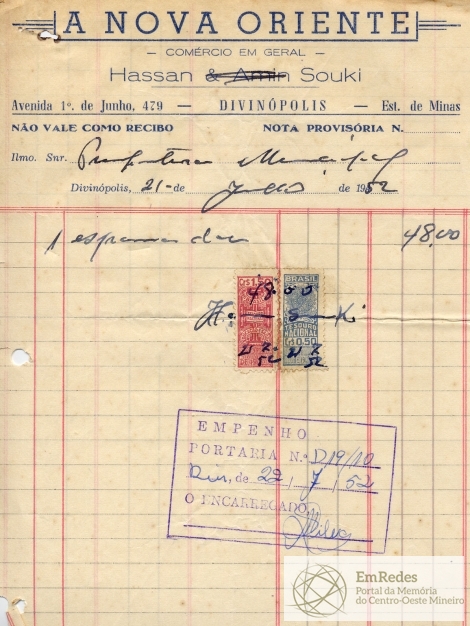 A NOVA ORIENTE
— COMÉRCIO EM GERAL —
Hassan & Amin Souki
Avenida 1º. de Junho, 479 — DIVINÓPOLIS — Est. de Minas
NÃO VALE COMO RECIBO NOTA PROVISÓRIA N.
Ilmo. Snr. Prefeitura Municipal
Divinópolis, 21- de Julho de 1952
1 48,00
Cr$1,50 BRASIL
48.00
TESOURO NACIONAL
Cr$0,50
21 7 52 21 7 52
EMPENHO
PORTARIA N.º D19/10
Div, de 22 / 7 / 52
O ENCARREGADO
EmRedes
Portal da Memória
do Centro-Oeste Mineiro